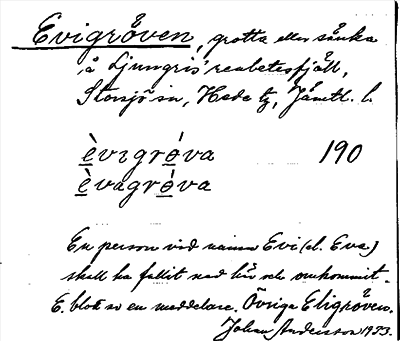 Evigröven, grotta eller sänka
å Ljungris' renbetesfjäll,
Storsjö sn, Hede tg, Jämtl. l.
èvιgrǿva 190
èvagrǿva
En person vid namn Evi (el. Eva)
skall ha fallit ned här och omkommit.
E. blott av en meddelare. Övriga Eligröven.
Johan Andersson 1933.